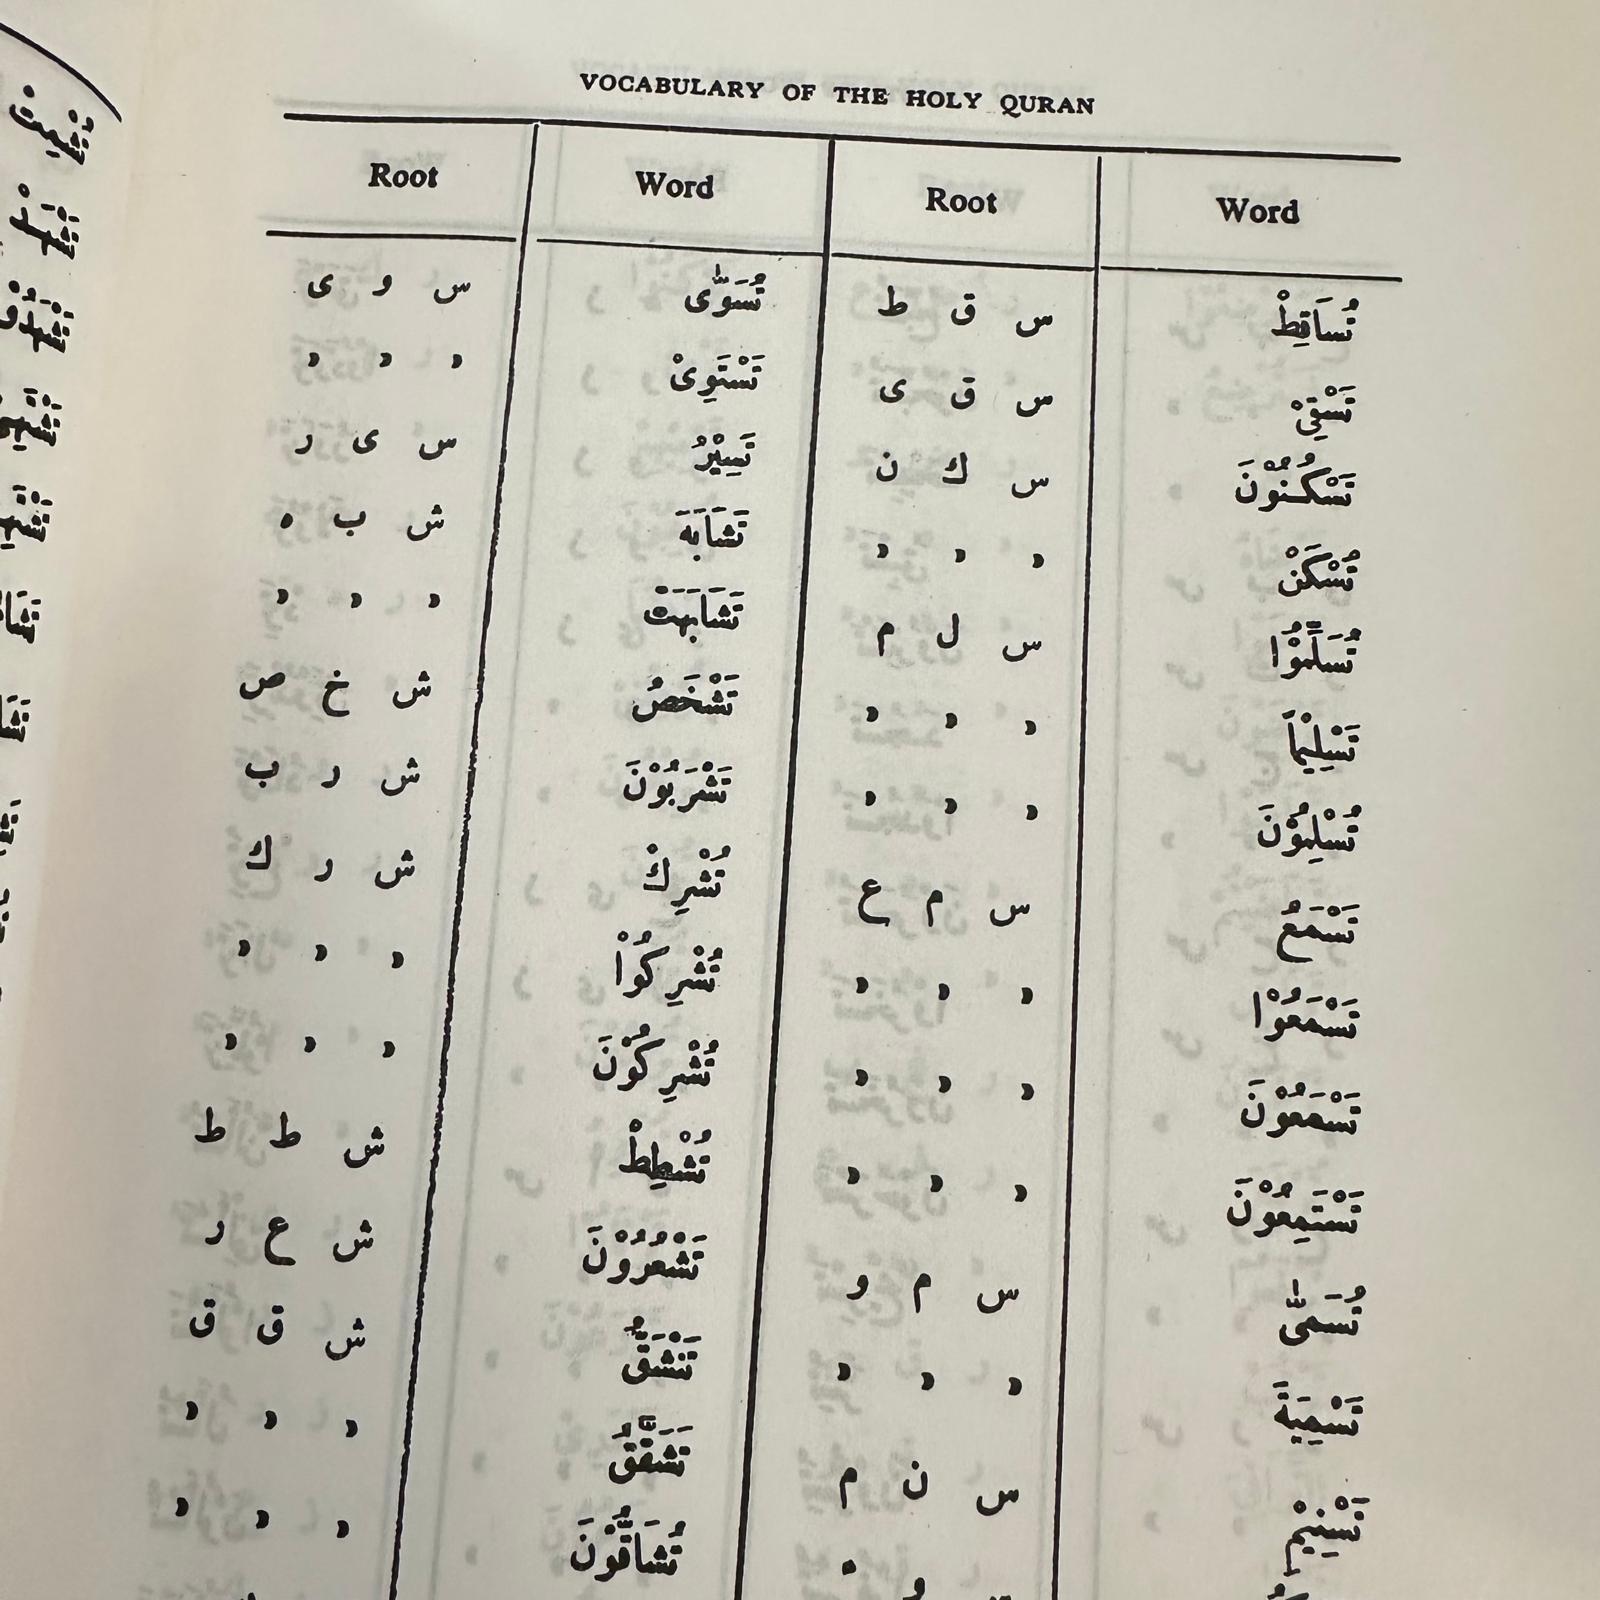 VOCABULARY OF THE HOLY QURAN
Root Word Root Word
تُسَاقِطْ س ق ط تُسَوّٰى س و ى
تَسْقِىْ س ق ى تَسْتَوِىْ " " "
تَسْكُنُوْنَ س ك ن تَسِيْرُ س ى ر
تُسْكَنْ " " " تَشَابَهَ ش ب ه
تُسَلِّمُوْا س ل م تَشَابَهَتْ " " "
تَسْلِيْمًا " " " تَشْخَصُ ش خ ص
تُسْلِمُوْنَ " " " تَشْرَبُوْنَ ش ر ب
تَسْمَعُ س م ع تُشْرِكْ ش ر ك
تَسْمَعُوْا " " " تُشْرِكُوْا " " "
تَسْمَعُوْنَ " " " تُشْرِكُوْنَ " " "
تَسْتَمِعُوْنَ " " " تُشْطِطْ ش ط ط
تُسَمّٰى س م و تَشْعُرُوْنَ ش ع ر
تَسْمِيَةَ " " " تَنْشَقُّ ش ق ق
تَسْنِيْمٍ س ن م تَشَقَّقُ " " "
تُشَاقُّوْنَ " " "